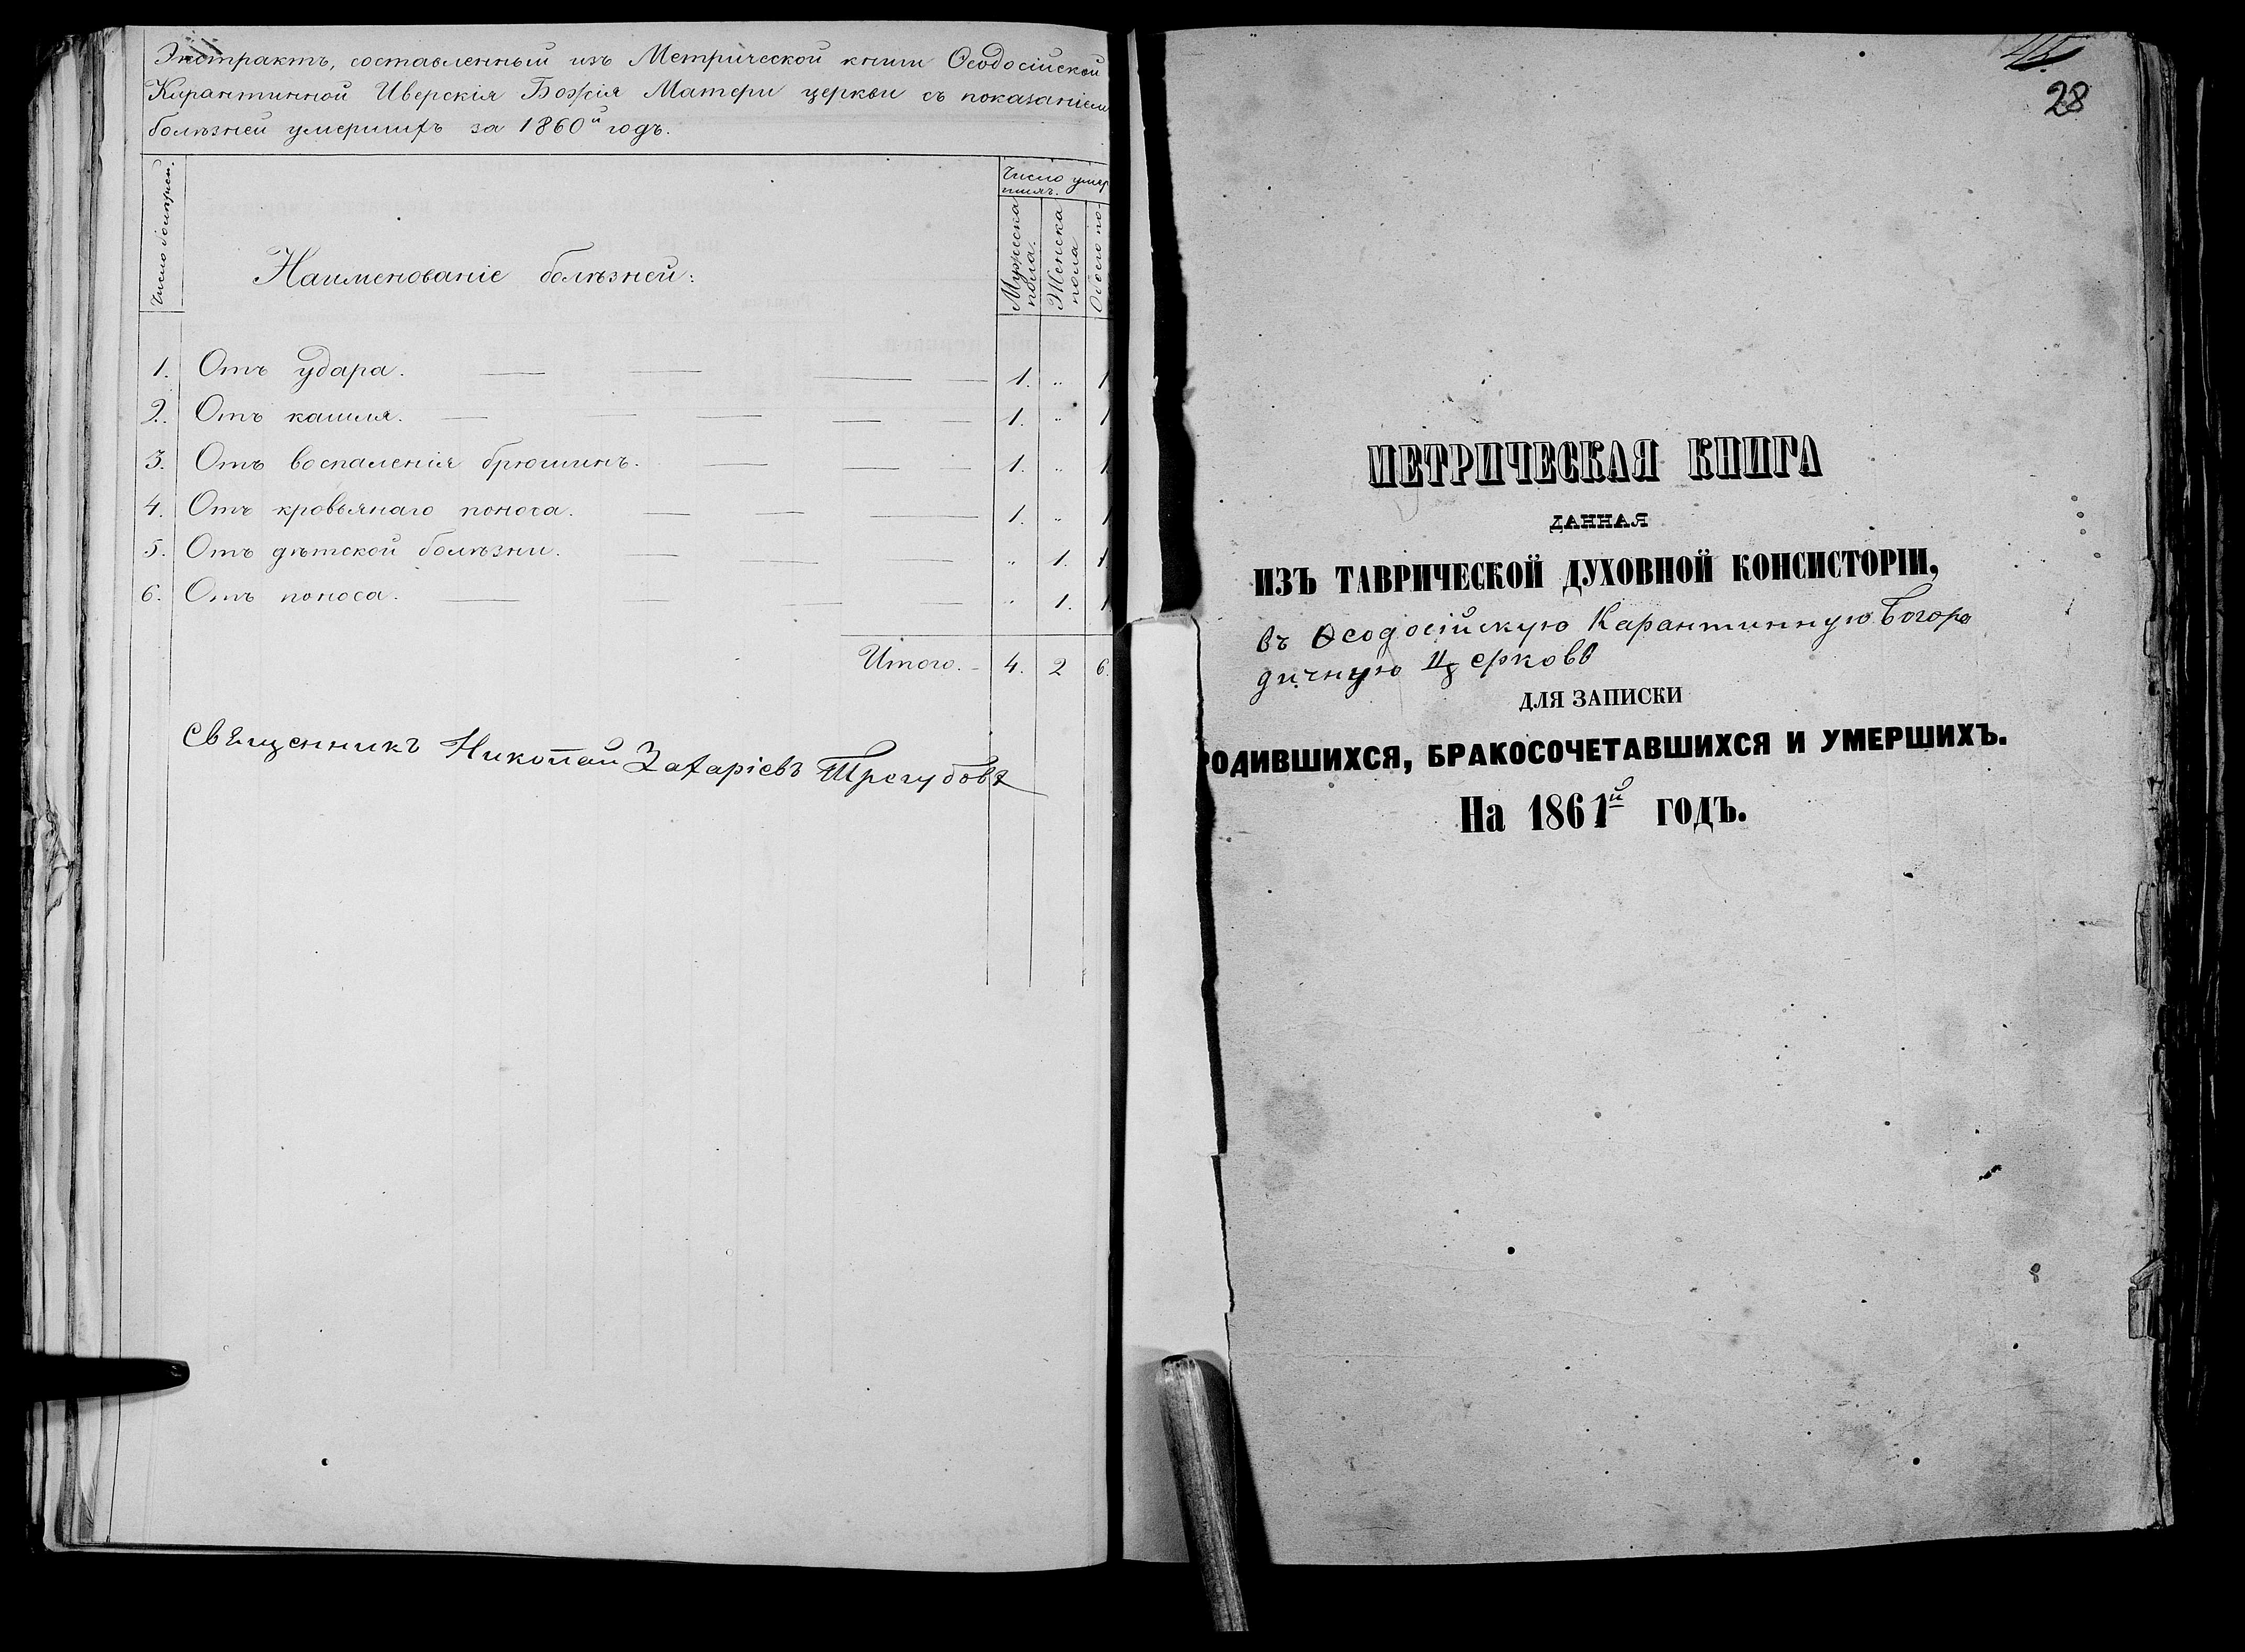 Экстрактъ, составленный изъ Метрической книги Ѳеодосійской
Карантинной Иверскія Божія Матери церкви съ показаніем
болѣзней умершихъ за 1860й годъ.
Число болѣзней.
Наименованіе болѣзней:
Число умер
шихъ.
Мужеска
пола.
Женска
пола
Обоего по-
1. Отъ удара. 1. „ 1
2. Отъ кашля. 1. „ 1
3. Отъ воспаленія брюшинъ. 1. „ 1
4. Отъ кровянаго поноса. 1. „ 1
5. Отъ дѣтской болѣзни. „ 1. 1.
6. Отъ поноса. „ 1. 1
Итого. 4. 2 6.
Священникъ Николай Захаріевъ Трегубовъ
28
МЕТРИЧЕСКАЯ КНИГА
ДАННАЯ
ИЗЪ ТАВРИЧЕСКОЙ ДУХОВНОЙ КОНСИСТОРІИ,
въ Ѳеодосійскую Карантинную Богоро
дичную Церковь
ДЛЯ ЗАПИСКИ
РОДИВШИХСЯ, БРАКОСОЧЕТАВШИХСЯ И УМЕРШИХЪ.
На 1861й ГОДЪ.